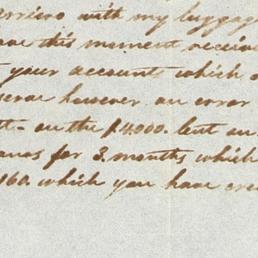 arrived with my luggage
have this moment received
t your accounts which
serve however an error
t. on the $4,000. lent
for 3. months which
160. which you have